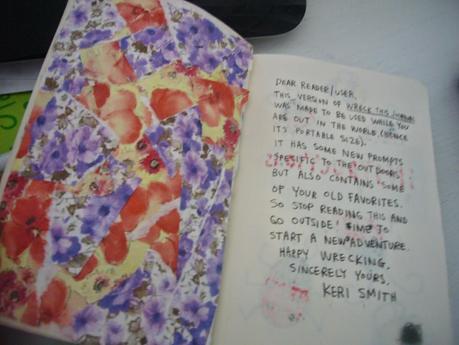 DEAR READER/USER,
THIS VERSION OF WRECK THIS JOURNAL
WAS MADE TO BE USED WHILE YOU
ARE OUT IN THE WORLD. (HENCE
ITS PORTABLE SIZE).
IT HAS SOME NEW PROMPTS
SPECIFIC TO THE OUTDOORS
BUT ALSO CONTAINS SOME
OF YOUR OLD FAVORITES.
SO STOP READING THIS AND
GO OUTSIDE! TIME TO
START A NEW ADVENTURE.
HAPPY WRECKING.
SINCERELY YOURS,
KERI SMITH